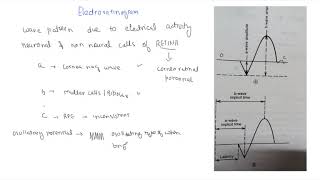 Electroretinogram
wave pattern due to electrical activity
neuronal & non neural cells of RETINA
a → Cornea neg wave → corneoretinal
potential
b → muller cells / Bipolar
c → RPE → inconsistent
oscillatory potential → oscillatory type when
a-wave amplitude
b-wave
O
C
b-wave
implicit time
a-wave
implicit time
Latency